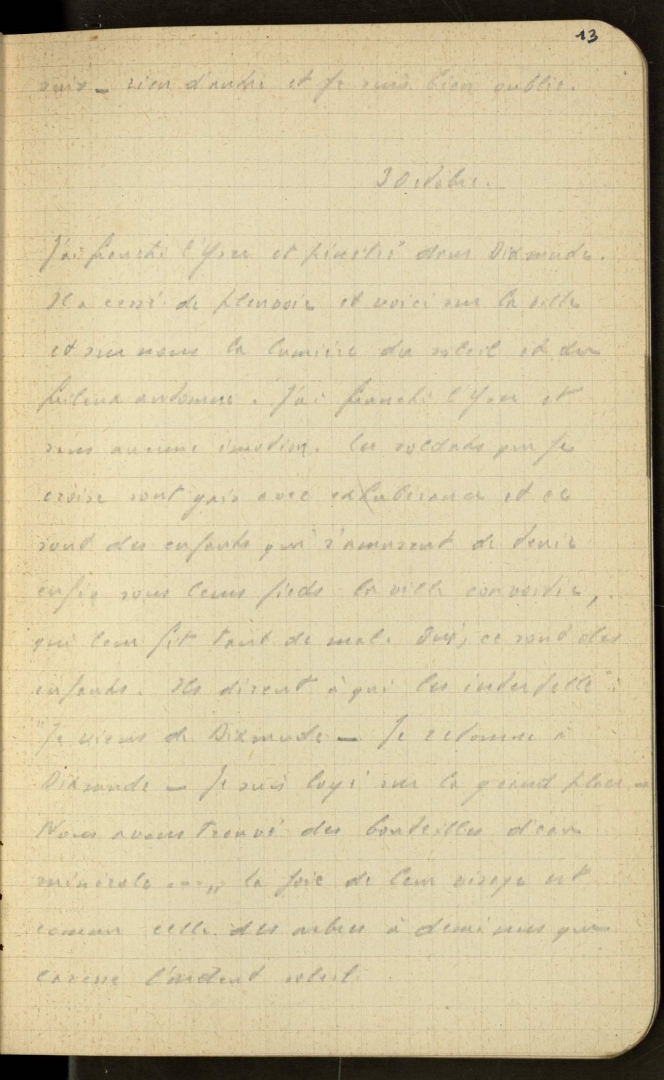 13
suis — rien d'autre et je suis bien oublié.
3 Octobre.
J'ai franchi l'Yser et pénétré dans Dixmude.
Il a cessé de pleuvoir et voici sur la ville
et sur nous la lumière du soleil et du
frileux automne. J'ai franchi l'Yser et
sans aucune émotion. Les soldats que je
croise sont gais avec exhubérance et ce
sont des enfants qui s'amusent de tenir
enfin sous leurs pieds la ville convoitée,
qui leur fit tant de mal. Oui, ce sont des
enfants. Ils disent à qui les interpelle :
"Je viens de Dixmude — Je retourne à
Dixmude — Je suis logé sur la grand place —
Nous avons trouvé des bouteilles d'eau
minérale ...," la joie de leur visage est
comme celle des arbres à demi nus que
caresse l'ardent soleil.